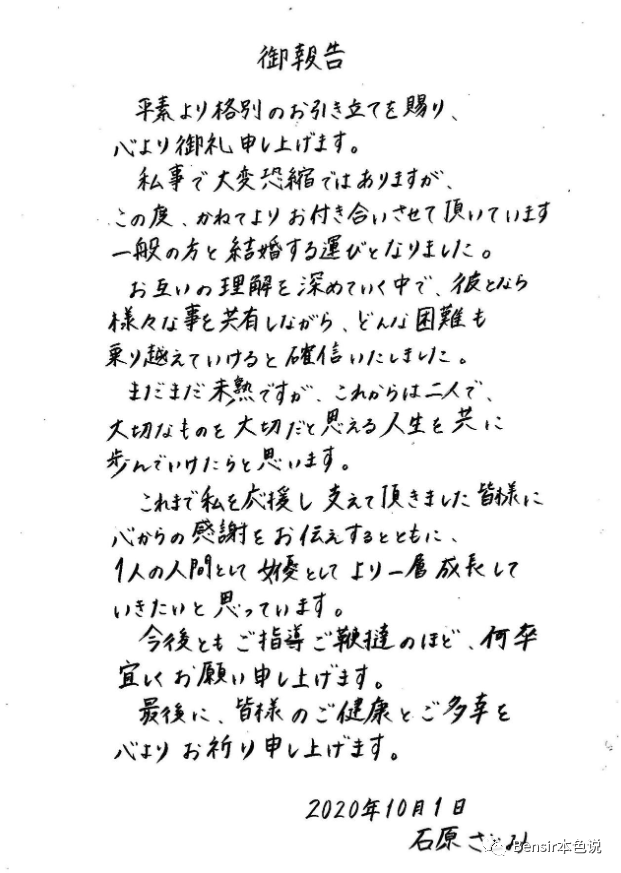 御報告
平素より格別のお引き立てを賜り、
心より御礼申し上げます。
私事で大変恐縮ではありますが、
この度、かねてよりお付き合いさせて頂いています
一般の方と結婚する運びとなりました。
お互いの理解を深めていく中で、彼となら
様々な事を共有しながら、どんな困難も
乗り越えていけると確信いたしました。
まだまだ未熟ですが、これからは二人で、
大切なものを大切だと思える人生を共に
歩んでいけたらと思います。
これまで私を応援し支えて頂きました皆様に
心からの感謝をお伝えするとともに、
1人の人間として女優としてより一層成長して
いきたいと思っています。
今後ともご指導ご鞭撻のほど、何卒
宜しくお願い申し上げます。
最後に、皆様のご健康とご多幸を
心よりお祈り申し上げます。
2020年10月1日
石原さとみ
Bensir本色说